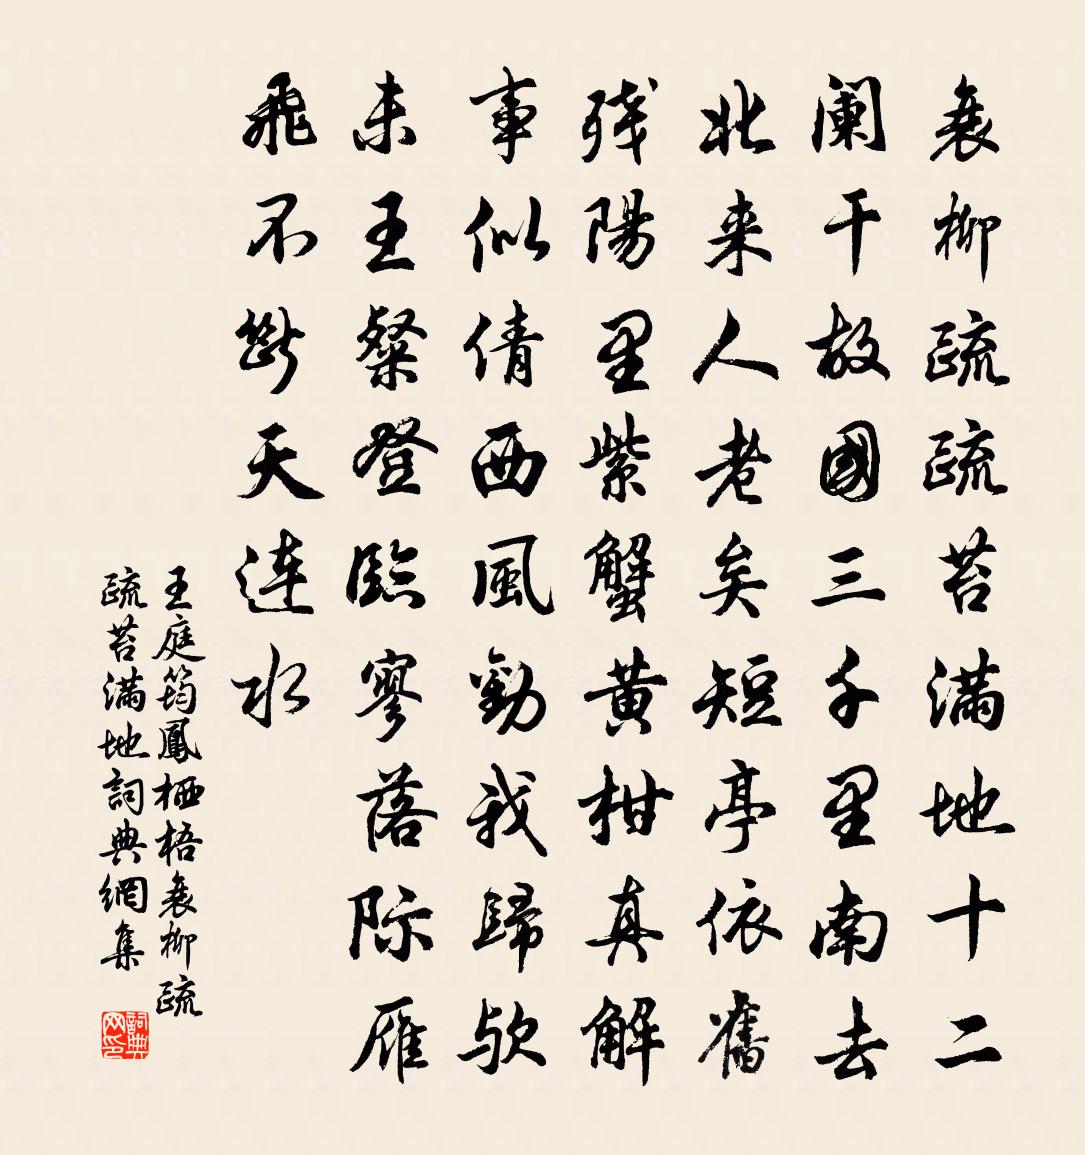 衰柳疏疏苔满地十二
阑干故國三千里南去
北来人老矣短亭依舊
残陽里紫蟹黄柑真解
事似倩西風勸我歸欤
未王粲登臨寥落际雁
飛不断天连水
王庭筠鳳栖梧衰柳疏
疏苔满地詞典網集
詞典网印